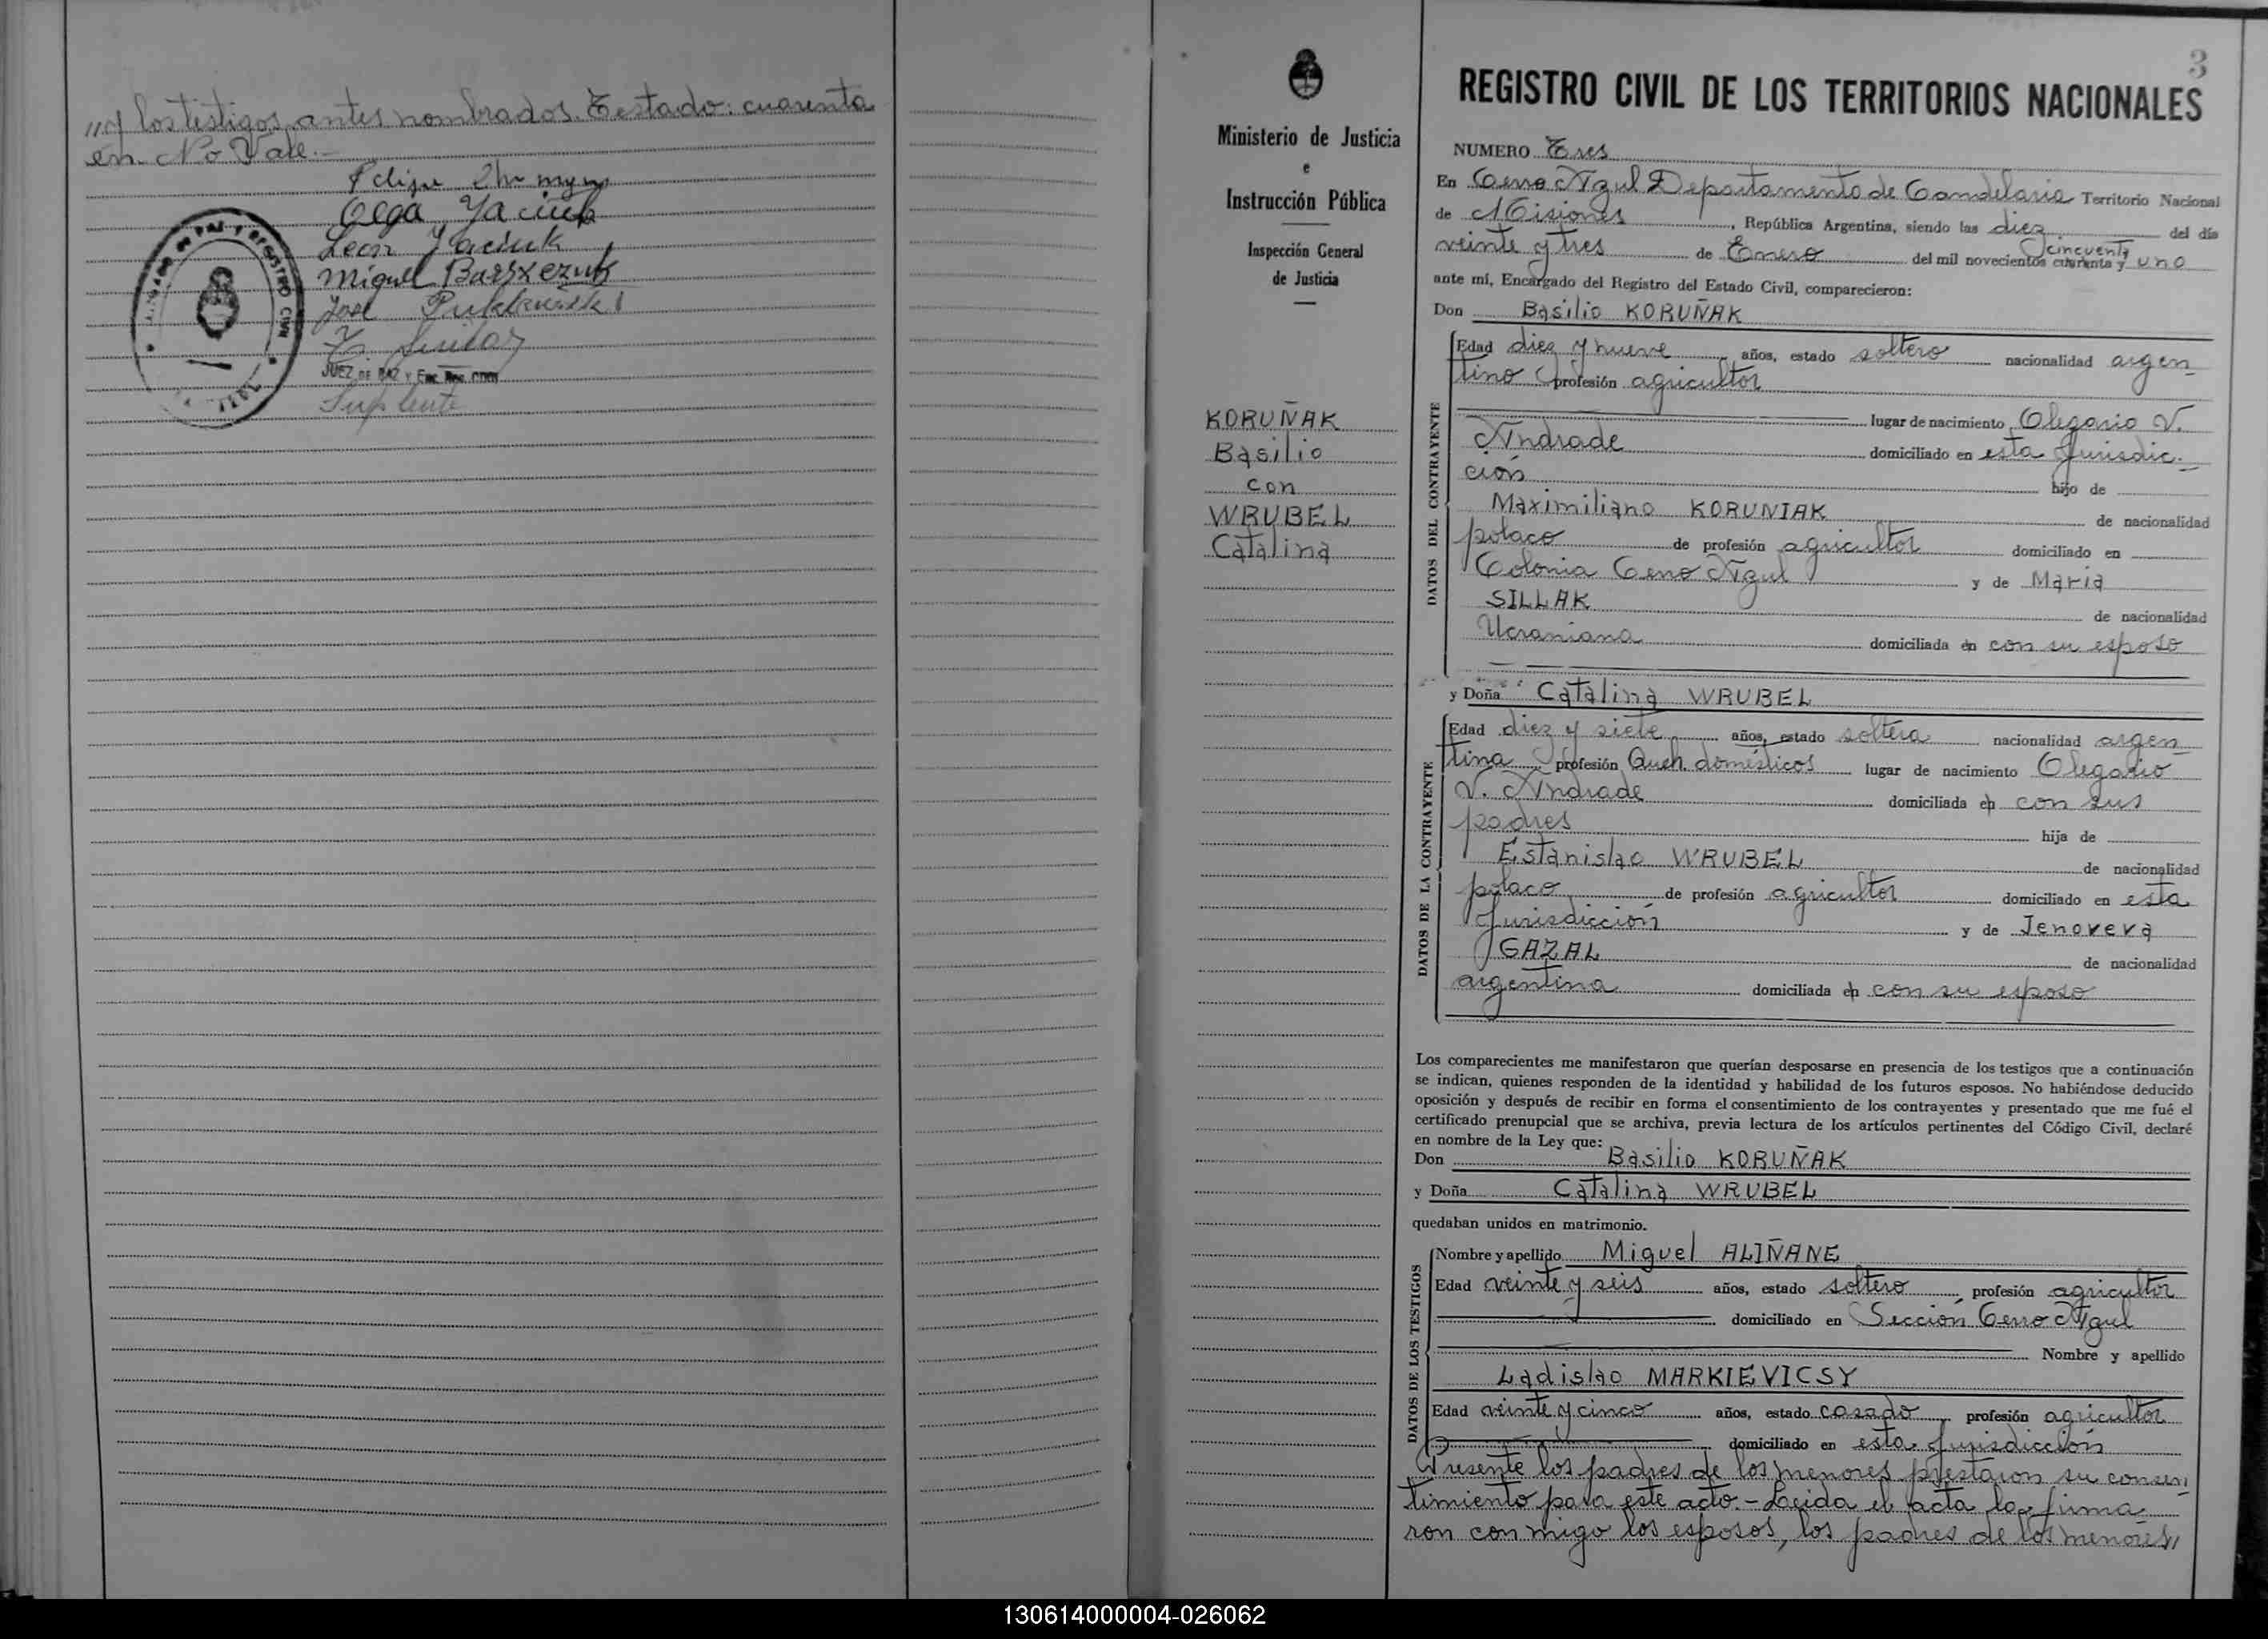 "y los testigos antes nombrados. Testado: cuarenta
en. No Vale.-
Olga Yaciuk
Leon Yaciuk
Miguel Barszczuk
José
JUEZ DE PAZ Y Enc. Reg. CIVIL
Suplente
JUZGADO DE PAZ Y REGISTRO CIVIL
Ministerio de Justicia
e
Instrucción Pública
Inspección General
de Justicia
KORUÑAK
Basilio
con
WRUBEL
Catalina
3
REGISTRO CIVIL DE LOS TERRITORIOS NACIONALES
NUMERO Tres
En Cerro Azul Departamento de Candelaria Territorio Nacional
de Misiones, República Argentina, siendo las diez del día
veinte y tres de Enero del mil novecientos cuarenta y cincuenta uno
ante mí, Encargado del Registro del Estado Civil, comparecieron:
Don Basilio KORUÑAK
DATOS DEL CONTRAYENTE
Edad diez y nueve años, estado soltero nacionalidad argen
tino profesión agricultor
lugar de nacimiento Olegario V.
Andrade domiciliado en esta Jurisdic-
ción hijo de
Maximiliano KORUNIAK de nacionalidad
polaco de profesión agricultor domiciliado en
Colonia Cerro Azul y de María
SILLAK de nacionalidad
Ucraniana domiciliada en con su esposo
y Doña Catalina WRUBEL
DATOS DE LA CONTRAYENTE
Edad diez y siete años, estado soltera nacionalidad argen
tina profesión Queh. domésticos lugar de nacimiento Olegario
V. Andrade domiciliada en con sus
padres hija de
Estanislao WRUBEL de nacionalidad
polaco de profesión agricultor domiciliado en esta
Jurisdicción y de Jenoveva
GAZAL de nacionalidad
argentina domiciliada en con su esposo
Los comparecientes me manifestaron que querían desposarse en presencia de los testigos que a continuación
se indican, quienes responden de la identidad y habilidad de los futuros esposos. No habiéndose deducido
oposición y después de recibir en forma el consentimiento de los contrayentes y presentado que me fué el
certificado prenupcial que se archiva, previa lectura de los artículos pertinentes del Código Civil, declaré
en nombre de la Ley que:
Don Basilio KORUÑAK
y Doña Catalina WRUBEL
quedaban unidos en matrimonio.
DATOS DE LOS TESTIGOS
Nombre y apellido Miguel ALIÑANE
Edad veinte y seis años, estado soltero profesión agricultor
domiciliado en Sección Cerro Azul
Nombre y apellido
Ladislao MARKIEVICSY
Edad veinte y cinco años, estado casado profesión agricultor
domiciliado en esta Jurisdicción
Presente los padres de los menores prestaron su consen
timiento para este acto.- Leida el acta la firma
ron con migo los esposos, los padres de los menores"
130614000004-026062